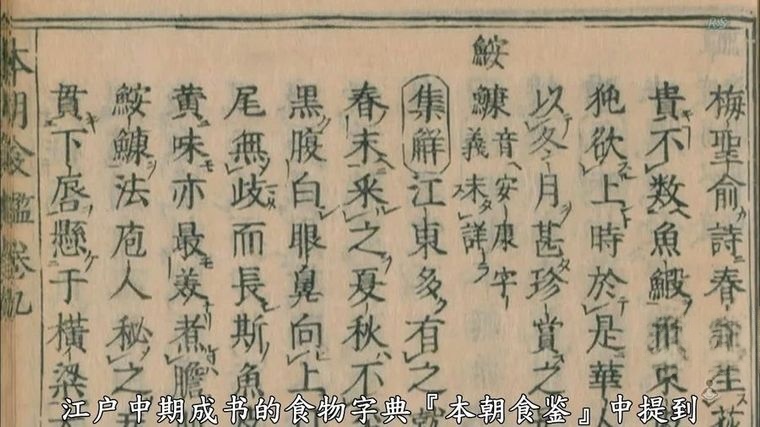 梅聖俞詩春生荻
貴不數魚鰕
㹠欲上時於是華人
以冬月甚珍賞之
鮟鱇 音安康字義未詳
集解 江東多有之
春末采之夏秋不
黒腹白眼鼻向上
尾無岐而長斯魚
黄味亦最美煮膽
鮟鱇法庖人秘之
貫下唇懸于横梁
本朝食鑑卷九
江户中期成书的食物字典『本朝食鉴』中提到